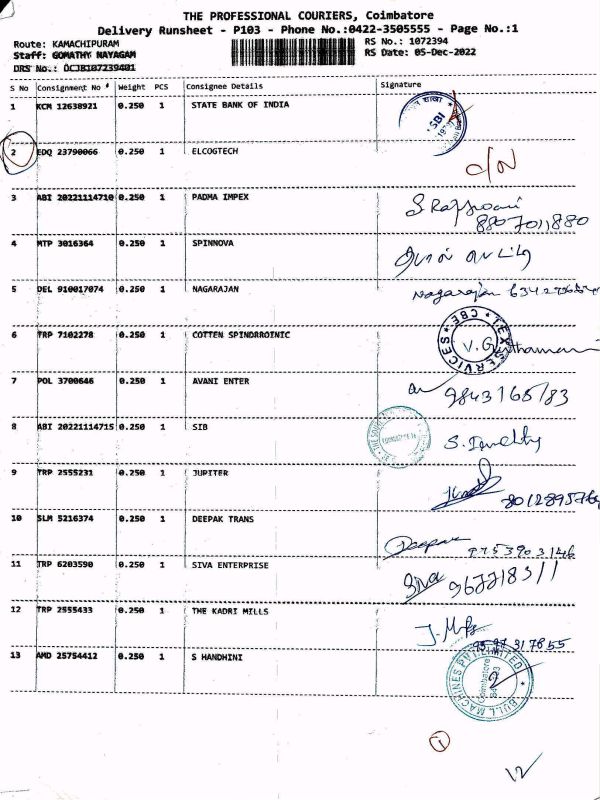 THE PROFESSIONAL COURIERS, Coimbatore
Delivery Runsheet - P103 - Phone No.:0422-3505555 - Page No.:1
Route: KAMACHIPURAM
RS No.: 1072394
Staff: GOMATHY NAYAGAM
RS Date: 05-Dec-2022
DRS No.: OCJB107239401
S No Consignment No # Weight PCS Consignee Details Signature
1 KCM 12638921 0.250 1 STATE BANK OF INDIA SBI
2 EDQ 23790066 0.250 1 ELCOGTECH
3 ABI 20221114710 0.250 1 PADMA IMPEX
8807011880
4 MTP 3016364 0.250 1 SPINNOVA
5 DEL 910017074 0.250 1 NAGARAJAN Nagarajan
6 TRP 7102278 0.250 1 COTTEN SPINDRROINIC TEX SERVICES * CBE *
7 POL 3700646 0.250 1 AVANI ENTER
9843165183
8 ABI 20221114715 0.250 1 SIB
9 TRP 2555231 0.250 1 JUPITER
10 SLM 5216374 0.250 1 DEEPAK TRANS Deepak
11 TRP 6203590 0.250 1 SIVA ENTERPRISE Siva
12 TRP 2555433 0.250 1 THE KADRI MILLS
13 AMD 25754412 0.250 1 S HANDHINI
BULL MACHINES PVT. LIMITED
Coimbatore
1
12